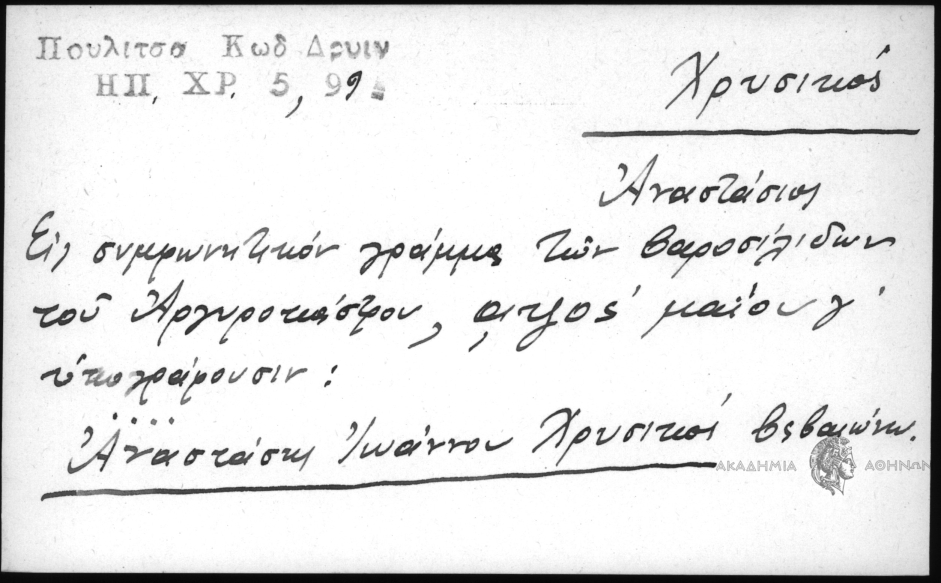 Πουλιτσα Κωδ Δρυιν
ΗΠ. ΧΡ. 5, 99
Χρυσικός
Ἀναστάσιος
Εἰς συμφωνητικόν γράμμα τῶν βαροσιλιδων
τοῦ Ἀργυροκάστρου, μαΐου γ'
ὑπογράφουσιν :
Ἀναστάσης Ἰωάννου Χρυσικός βεβαιώνω.
ΑΚΑΔΗΜΙΑ ΑΘΗΝΩΝ